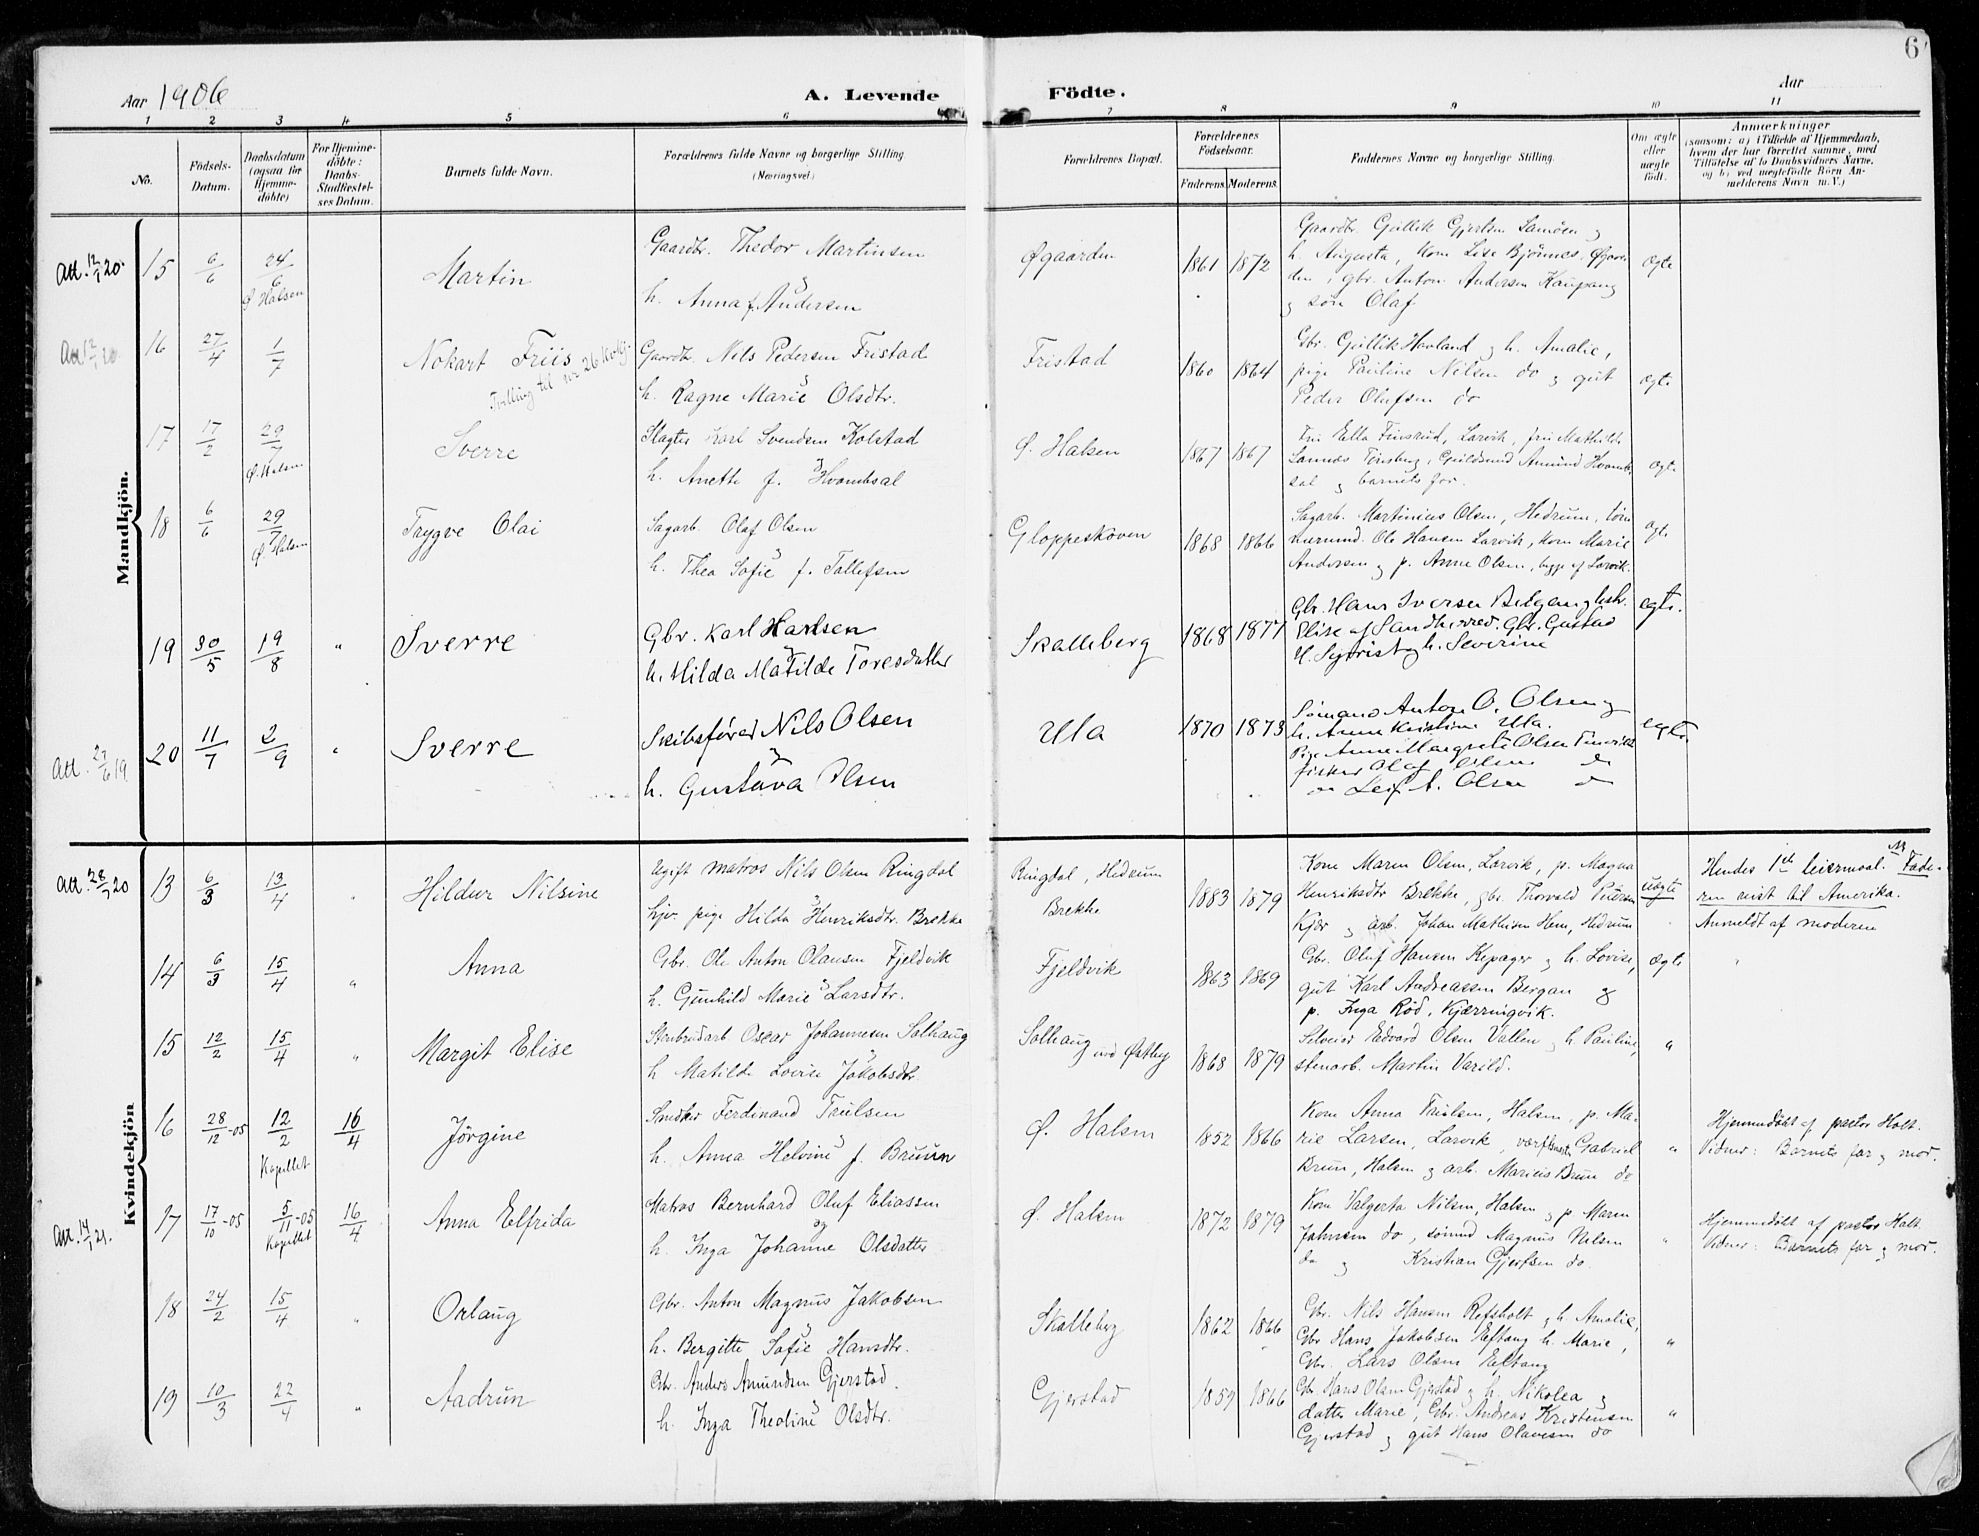 6
Aar 1906
A. Levende Födte.
Aar
1 2 3 4 5 6 7 8 9 10 11
No.
Födsels-Datum.
Daabsdatum (ogsaa for Hjemme-döbte)
For Hjemme-döbte: Daabs-Stadfæstel-ses Datum.
Barnets fulde Navn.
Forældrenes fulde Navne og borgerlige Stilling. (Næringsvei)
Forældrenes Bopæl.
Forældrenes Födselsaar.
Faderens. Moderens.
Faddernes Navne og borgerlige Stilling.
Om ægte eller uægte födt.
Anmærkninger
(saasom: a) i Tilfælde af Hjemmedaab,
hvem der har forrettet samme, med
Tilföielse af to Daabsvidners Navne,
og b) ved uægtefödte Börn An-
melderens Navn m. V.)
Mandkjön.
Att. 12/1 20. 15 6/6 24/6 Ø Halsen Martin
Gaardbr. Thedor Martinsen
og
h. Anna f. Andersen
Øgaarden 1861 1872
Gaardbr. Gullik Gjertsen Lamöen og
h. Augusta, kone Lise Bjönnes, Øgaar-
den, gbr. Anton Andersen Kaupang
og sön Olaf
ægte
Att 12/1 20. 16 27/4 1/7 Nokart Friis
Tvilling til nr 26 kvkj.
Gaardb. Nils Pedersen Fristad
og
h. Ragne Marie Olsdtr.
Fristad 1860 1864
Gbr. Gullik Havland og h. Amalie,
pige Pauline Nilsen do og gut
Peder Olufsen do
ægte
17 17/2 29/7 Ø. Halsen Sverre
Slagter Karl Svendsen Kolstad
og
h. Anette f. Hvambsal
Ø. Halsen 1867 1867
sal og barnets far.
ægte
18 6/6 29/7 Ø Halsen Trygve Olai
Sagarb. Olaf Olsen
og
h. Thea Sofie f. Tollefsen
Gloppeskoven 1868 1866
Sagarb. Martinius Olsen, Hedrum, töm
mermand Ole Hansen Larvik, kone Marie
Andersen og p. Anne Olsen, begge af Larvik.
ægte
19 30/5 19/8 " Sverre
Gbr. Karl Karlsen
og
h. Hilda Matilde Toresdatter
Skalleberg 1868 1877
Gbr. Hans Iversen
Elise af Sandherred. Gbr. Gustav
h. Severine
egte.
Att. 27/6 19 20 11/7 2/9 " Sverre
Skibsförer Nils Olsen
og
h. Gustava Olsen
Ula 1870 1873
Sömand Anton O. Olsen og
h. Anne Kristine Ula.
Pige Anne Margrete Olsen
fisker Olaf Olsen do
do Leif A. Olsen do
egte.
Kvindekjön
Att. 28/7 20 13 6/3 13/4 " Hildur Nilsine
Ugift matros Nils Olsen Ringdal
og
hjv. pige Hilda Henriksdtr. Brekke
Ringdal, Hedrum
Brekke 1883 1879
Kone Maren Olsen, Larvik, p. Magna
Henriksdtr Brekke, gbr. Thorvald Petersen
Kjær og arb. Johan Mathisen Hem, Hedrum
uægte
Hendes 1ste leiermaal. NB Fade-
ren reist til Amerika.
Anmeldt af moderen
14 6/3 15/4 " Anna
Gbr. Ole Anton Olausen Fjeldvik
og
h. Gunhild Marie Larsdtr.
Fjeldvik 1863 1869
Gbr. Oluf Hansen Kepager og h. Lovise,
gut Karl Andreassen Bergan og
p. Inga Röd, Kjærringvik.
ægte "
15 12/2 15/4 " Margit Elise
Stenbrudarb. Oscar Johannesen Solhaug
og
h Matilde Lovise Jakobsdtr.
Solhaug
und Østby 1868 1879
Edvard Olsen Vallen og h Pauline,
stenarb. Martin Varild.
"
16 28/12-05 12/2 Kapellet 16/4 Jörgine
Snedker Ferdinand Trulsen
og
h. Anna Helvine f. Bruun
Ø. Halsen 1852 1866
Kone Anna Trulsen, Halsen, p. Ma-
rie Larsen, Larvik, Gabriel
Brun, Halsen og arb. Marius Brun do
"
Hjemmedöbt af pastor Holt.
Vidner: Barnets far og mor.
Att. 14/1 21. 17 17/10-05 5/11-05 Kapellet 16/4 Anna Elfrida
Matros Bernhard Oluf Eliassen
og
h. Inga Johanne Olsdatter
Ø. Halsen 1872 1879
Kone Valgerta Nilsen, Halsen og p. Maren
Jahnsen do, sömnd Magnus Nilsen
do og Kristian Gjertsen do.
"
Hjemmedöbt af pastor Holt.
Vidner: Barnets far og mor.
18 24/2 15/4 " Orlaug
Gbr. Anton Magnus Jakobsen
og
h. Bergitte Sofie Hansdtr.
Skalleberg 1862 1866
Gbr. Nils Hansen Refsholt og h. Amalie,
Gbr Hans Jakobsen Eftang h. Marie,
Gbr. Lars Olsen Eftang
"
19 10/3 22/4 " Aadrun
Gbr. Anders Amundsen Gjerstad.
og
h. Inga Theoline Olsdtr.
Gjerstad 1857 1866
Gbr. Hans Olsen Gjerstad og h. Nikolea og
datter Marie, Gbr. Andreas Kristensen
Gjerstad og gut Hans Olavesen do
"